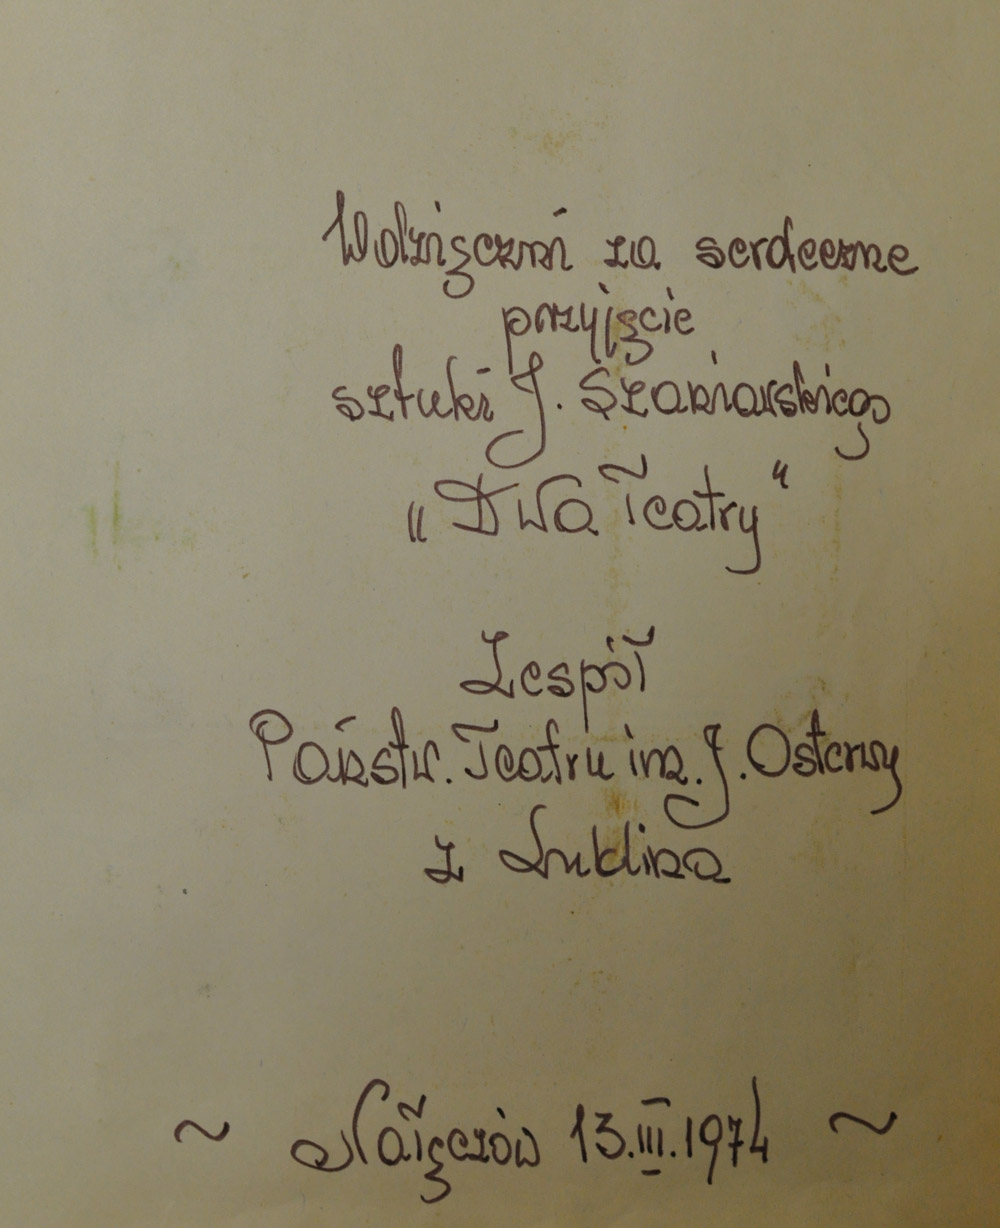 Wdzięczni za serdeczne
przyjęcie
sztuki J. Szaniawskiego
„Dwa Teatry"
Zespół
Państw. Teatru im. J. Osterwy
z Lublina
~ Nałęczów 13.III.1974 ~